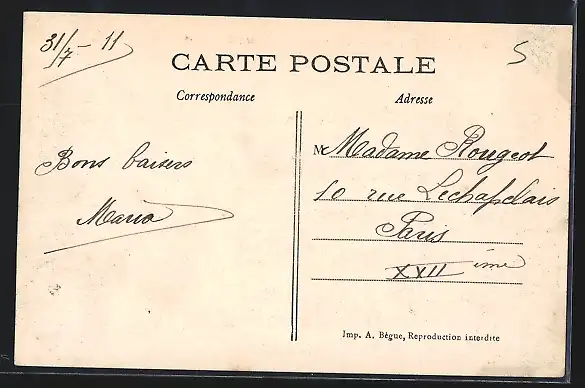 31/7 - 11
5
CARTE POSTALE
Correspondance
Adresse
Bons baisers
Maria
M Madame Rougeot
10 rue Lechapelais
Paris
XVII ième
Imp. A. Bègue, Reproduction interdite